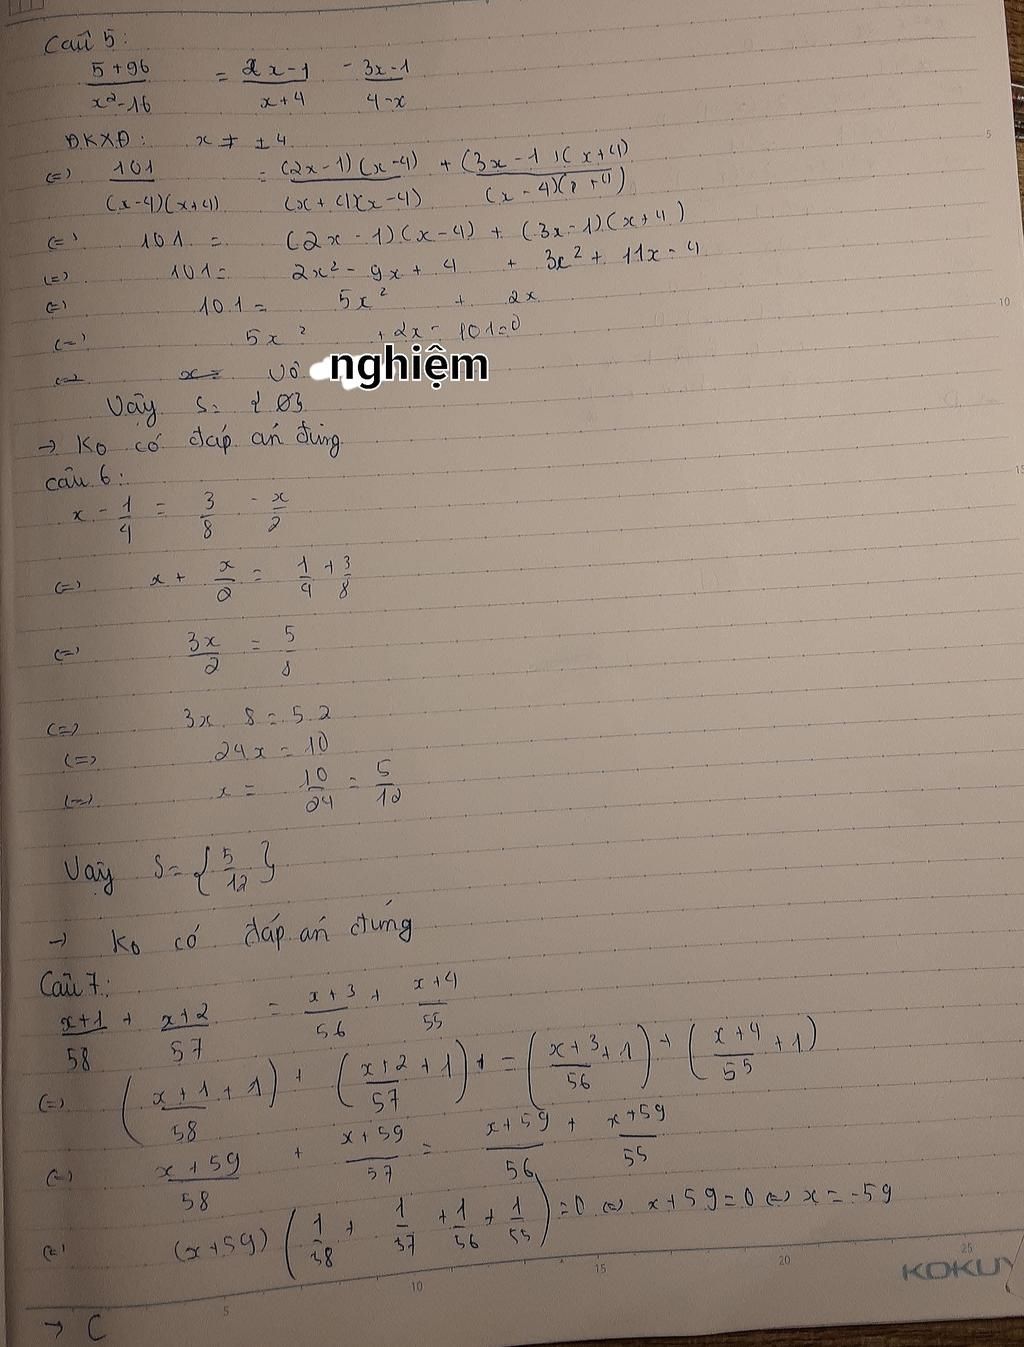 Câu 5:
5+96 / x²-16 = 2x-1 / x+4 - 3x-1 / 4-x
ĐKXĐ: x ≠ ±4
(=) 101 / (x-4)(x+4) = (2x-1)(x-4) / (x+4)(x-4) + (3x-1)(x+4) / (x-4)(x+4)
(=) 101 = (2x-1)(x-4) + (3x-1)(x+4)
(=) 101= 2x² - 9x + 4 + 3x² + 11x - 4
(=) 101 = 5x² + 2x
(=) 5x² + 2x - 101=0
x = vô nghiệm
Vậy S= {Ø}
→ Ko có đáp án đúng
câu 6:
x - 1/4 = 3/8 - x/2
(=) x + x/2 = 1/4 + 3/8
(=) 3x/2 = 5/8
(=) 3x . 8 = 5.2
(=) 24x = 10
(=) x = 10/24 = 5/12
Vậy S= {5/12}
→ Ko có đáp án đúng
Câu 7:
x+1/58 + x+2/57 = x+3/56 + x+4/55
(=) (x+1/58 + 1) + (x+2/57 + 1) + = (x+3/56 + 1) + (x+4/55 + 1)
(=) x+59/58 + x+59/57 = x+59/56 + x+59/55
(=) (x+59) (1/58 + 1/57 + 1/56 + 1/55) = 0 (=) x+59=0 (=) x = -59
→ C
5 10 15 20 25
5
10
15
KOKUY